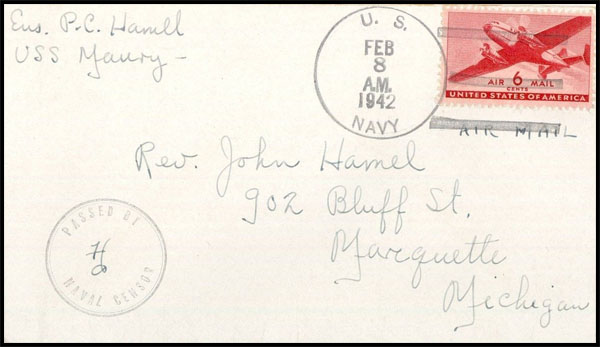 Ens. P.C. Hamel
USS Maury -
U. S.
FEB
8
A.M.
1942
NAVY
AIR 6 MAIL
CENTS
UNITED STATES OF AMERICA
AIR MAIL
Rev. John Hamel
902 Bluff St.
Marquette
Michigan
PASSED BY
NAVAL CENSOR